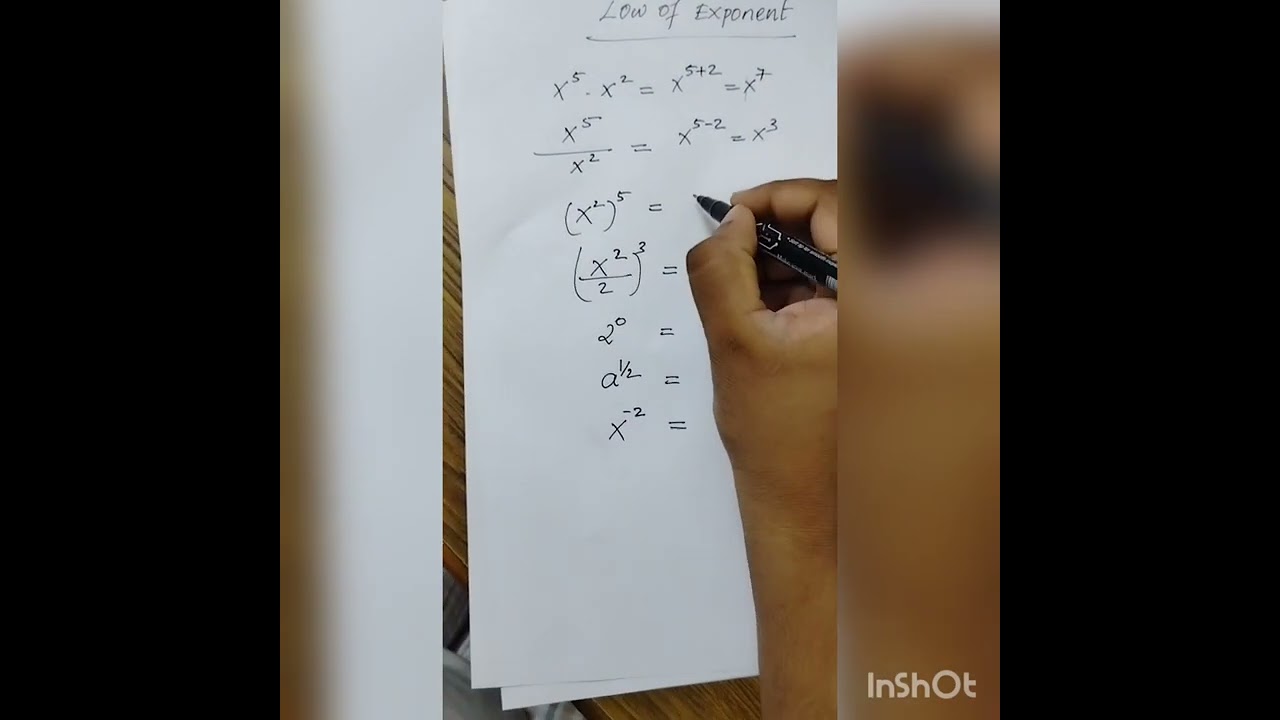 Low of Exponent
x⁵ · x² = x⁵⁺² = x⁷
x⁵/x² = x⁵⁻² = x³
(x²)⁵ =
(x²/2)³ =
2⁰ =
a^1/2 =
x⁻² =
InShOt